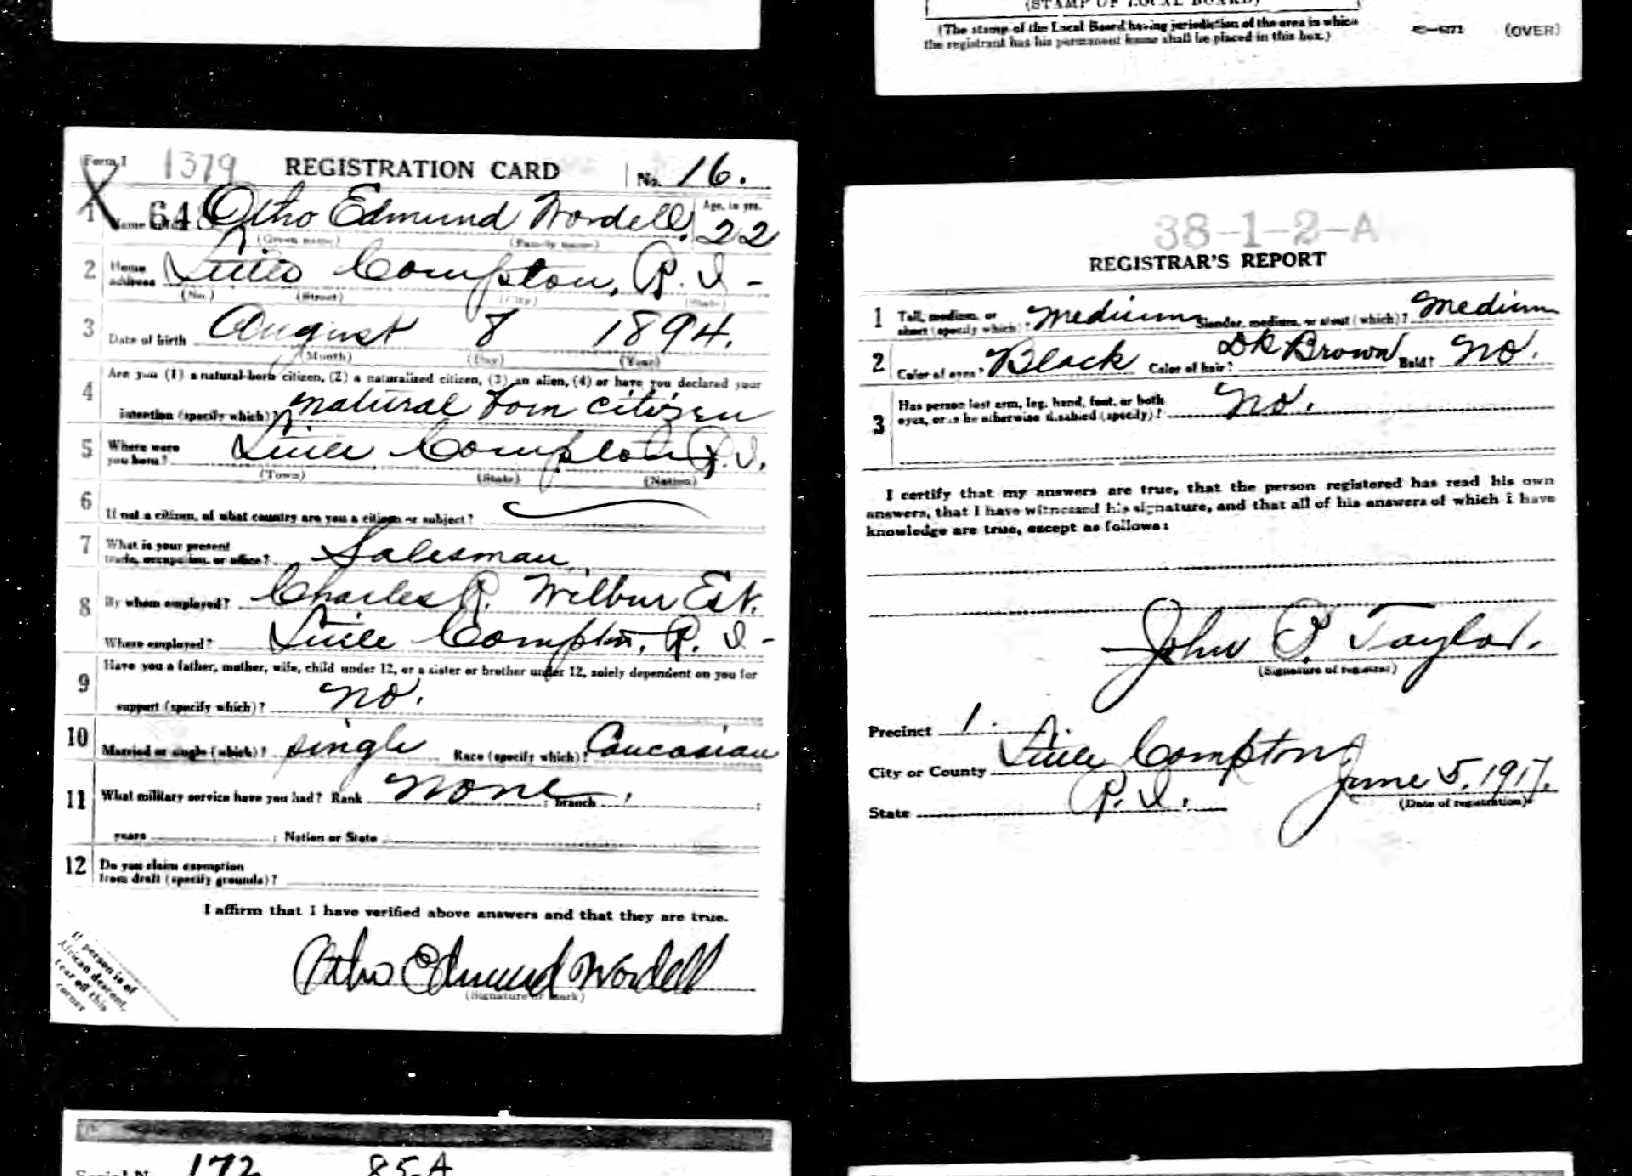 (STAMP OF LOCAL BOARD)
(The stamp of the Local Board having jurisdiction of the area in which
the registrant has his permanent home shall be placed in this box.)
(OVER)
Form 1 1379 REGISTRATION CARD No. 16.
1 648 Otho Edmund Wordell. Age, in yrs. 22
(Given name) (Family name)
2 Home address Little Compton, R. I -
(No.) (Street) (City) (State)
3 Date of birth August 8 1894.
(Month) (Day) (Year)
4 Are you (1) a natural-born citizen, (2) a naturalized citizen, (3) an alien, (4) or have you declared your
intention (specify which)? natural born citizen
5 Where were you born? Little Compton R. I.
(Town) (State) (Nation)
6 If not a citizen, of what country are you a citizen or subject?
7 What is your present trade, occupation, or office? Salesman
8 By whom employed? Charles R. Wilbur Est.
Where employed? Little Compton, R. I -
9 Have you a father, mother, wife, child under 12, or a sister or brother under 12, solely dependent on you for
support (specify which)? no.
10 Married or single (which)? single Race (specify which)? Caucasian
11 What military service have you had? Rank none ; branch ;
years ; Nation or State
12 Do you claim exemption from draft (specify grounds)?
I affirm that I have verified above answers and that they are true.
Otho Edmund Wordell
(Signature or mark)
If person is of
African descent,
tear off this
corner
38-1-2-A
REGISTRAR'S REPORT
1 Tall, medium, or short (specify which)? Medium Slender, medium, or stout (which)? Medium
2 Color of eyes? Black Color of hair? Dk Brown Bald? No.
3 Has person lost arm, leg, hand, foot, or both
eyes, or is he otherwise disabled (specify)? No.
I certify that my answers are true, that the person registered has read his own
answers, that I have witnessed his signature, and that all of his answers of which I have
knowledge are true, except as follows:
John P. Taylor.
(Signature of registrar)
Precinct 1.
City or County Little Compton
State R. I. June 5, 1917.
(Date of registration)
Serial N 172 85-A